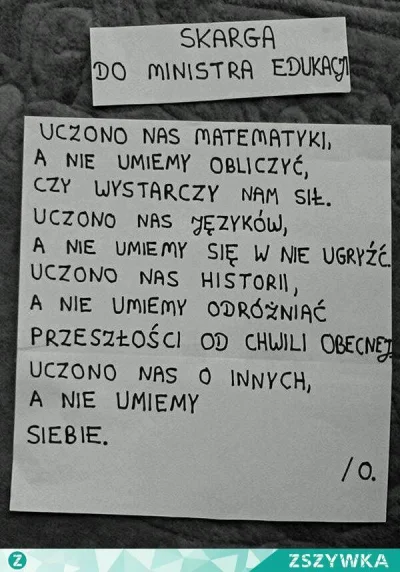 SKARGA
DO MINISTRA EDUKACJI
UCZONO NAS MATEMATYKI,
A NIE UMIEMY OBLICZYĆ,
CZY WYSTARCZY NAM SIŁ.
UCZONO NAS JĘZYKÓW,
A NIE UMIEMY SIĘ W NIE UGRYŹĆ.
UCZONO NAS HISTORII,
A NIE UMIEMY ODRÓŻNIAĆ
PRZESZŁOŚCI OD CHWILI OBECNEJ.
UCZONO NAS O INNYCH,
A NIE UMIEMY
SIEBIE.
/O.
Z ZSZYWKA